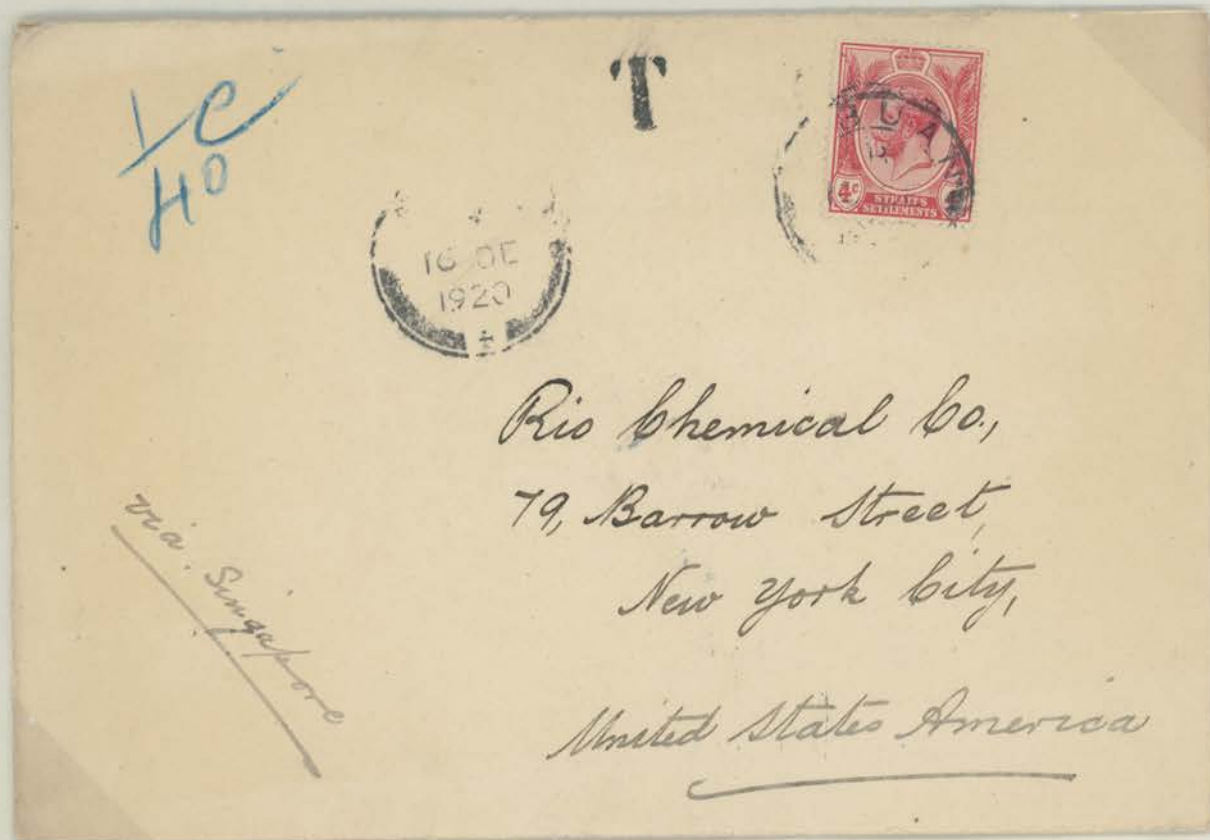 1 C
40
T
4c
STRAITS
SETTLEMENTS
16 DE
1920
Rio Chemical Co.,
79, Barrow Street,
New York City,
United States America
via. Singapore